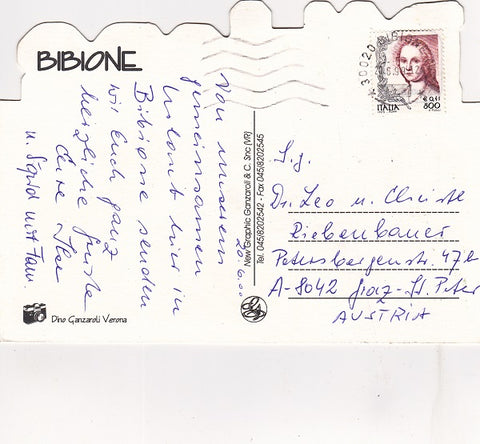 BIBIONE
Von unserem
gemeinsamen
Urlaub hier in
Bibione senden
wir Euch ganz
herzliche Grüße
Eure Ilse
u. Sigrid mit Fam.
20.6.00
Dino Ganzaroli Verona
New Graphic Ganzaroli & C. Snc (VR)
Tel. 045/8202542 - Fax 045/8202545
30020 BIBIONE
ITALIA
800
S.g.
Dr. Leo u. Christe
Riebenbauer
Petersbergenstr. 47b
A-8042 Graz-St. Peter
AUSTRIA